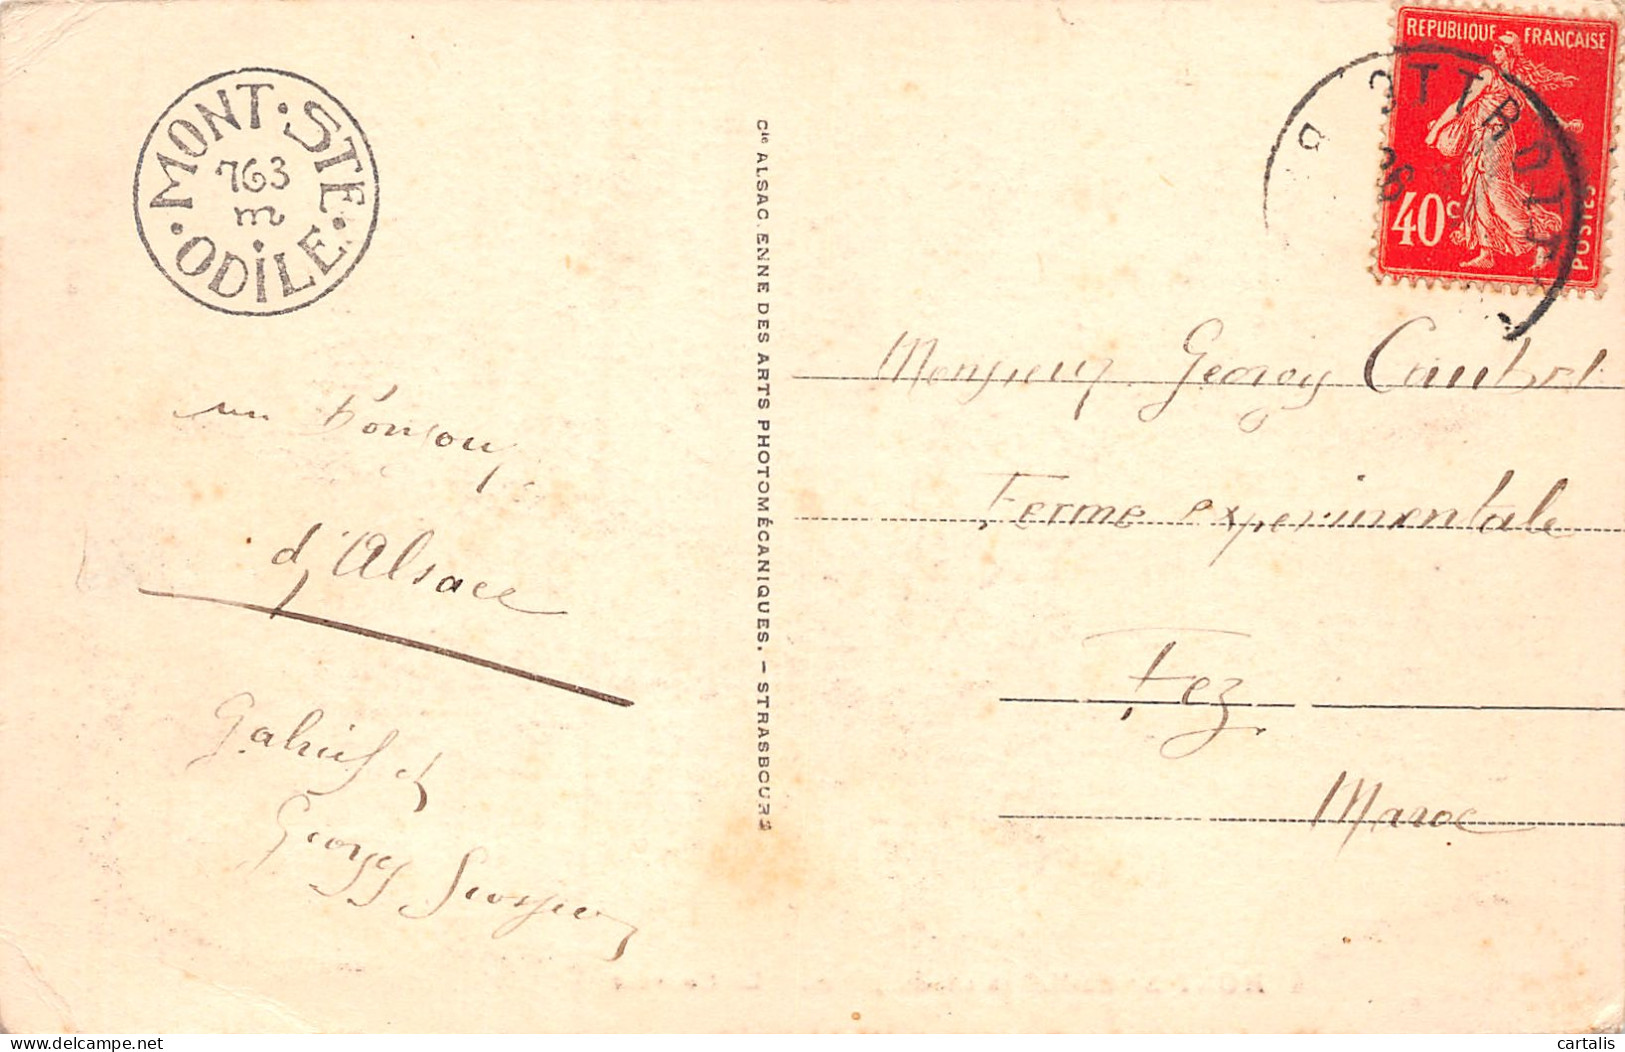 MONT · STE · ODILE ·
763
m
un bonjour
d'Alsace
Gabriel et
Georges
Cie ALSACIENNE DES ARTS PHOTOMÉCANIQUES. – STRASBOURG
REPUBLIQUE FRANÇAISE
40c
POSTES
OTTROTT
36
Monsieur Georges
Ferme experimentale
Fez
Maroc
delcampe.net
cartalis